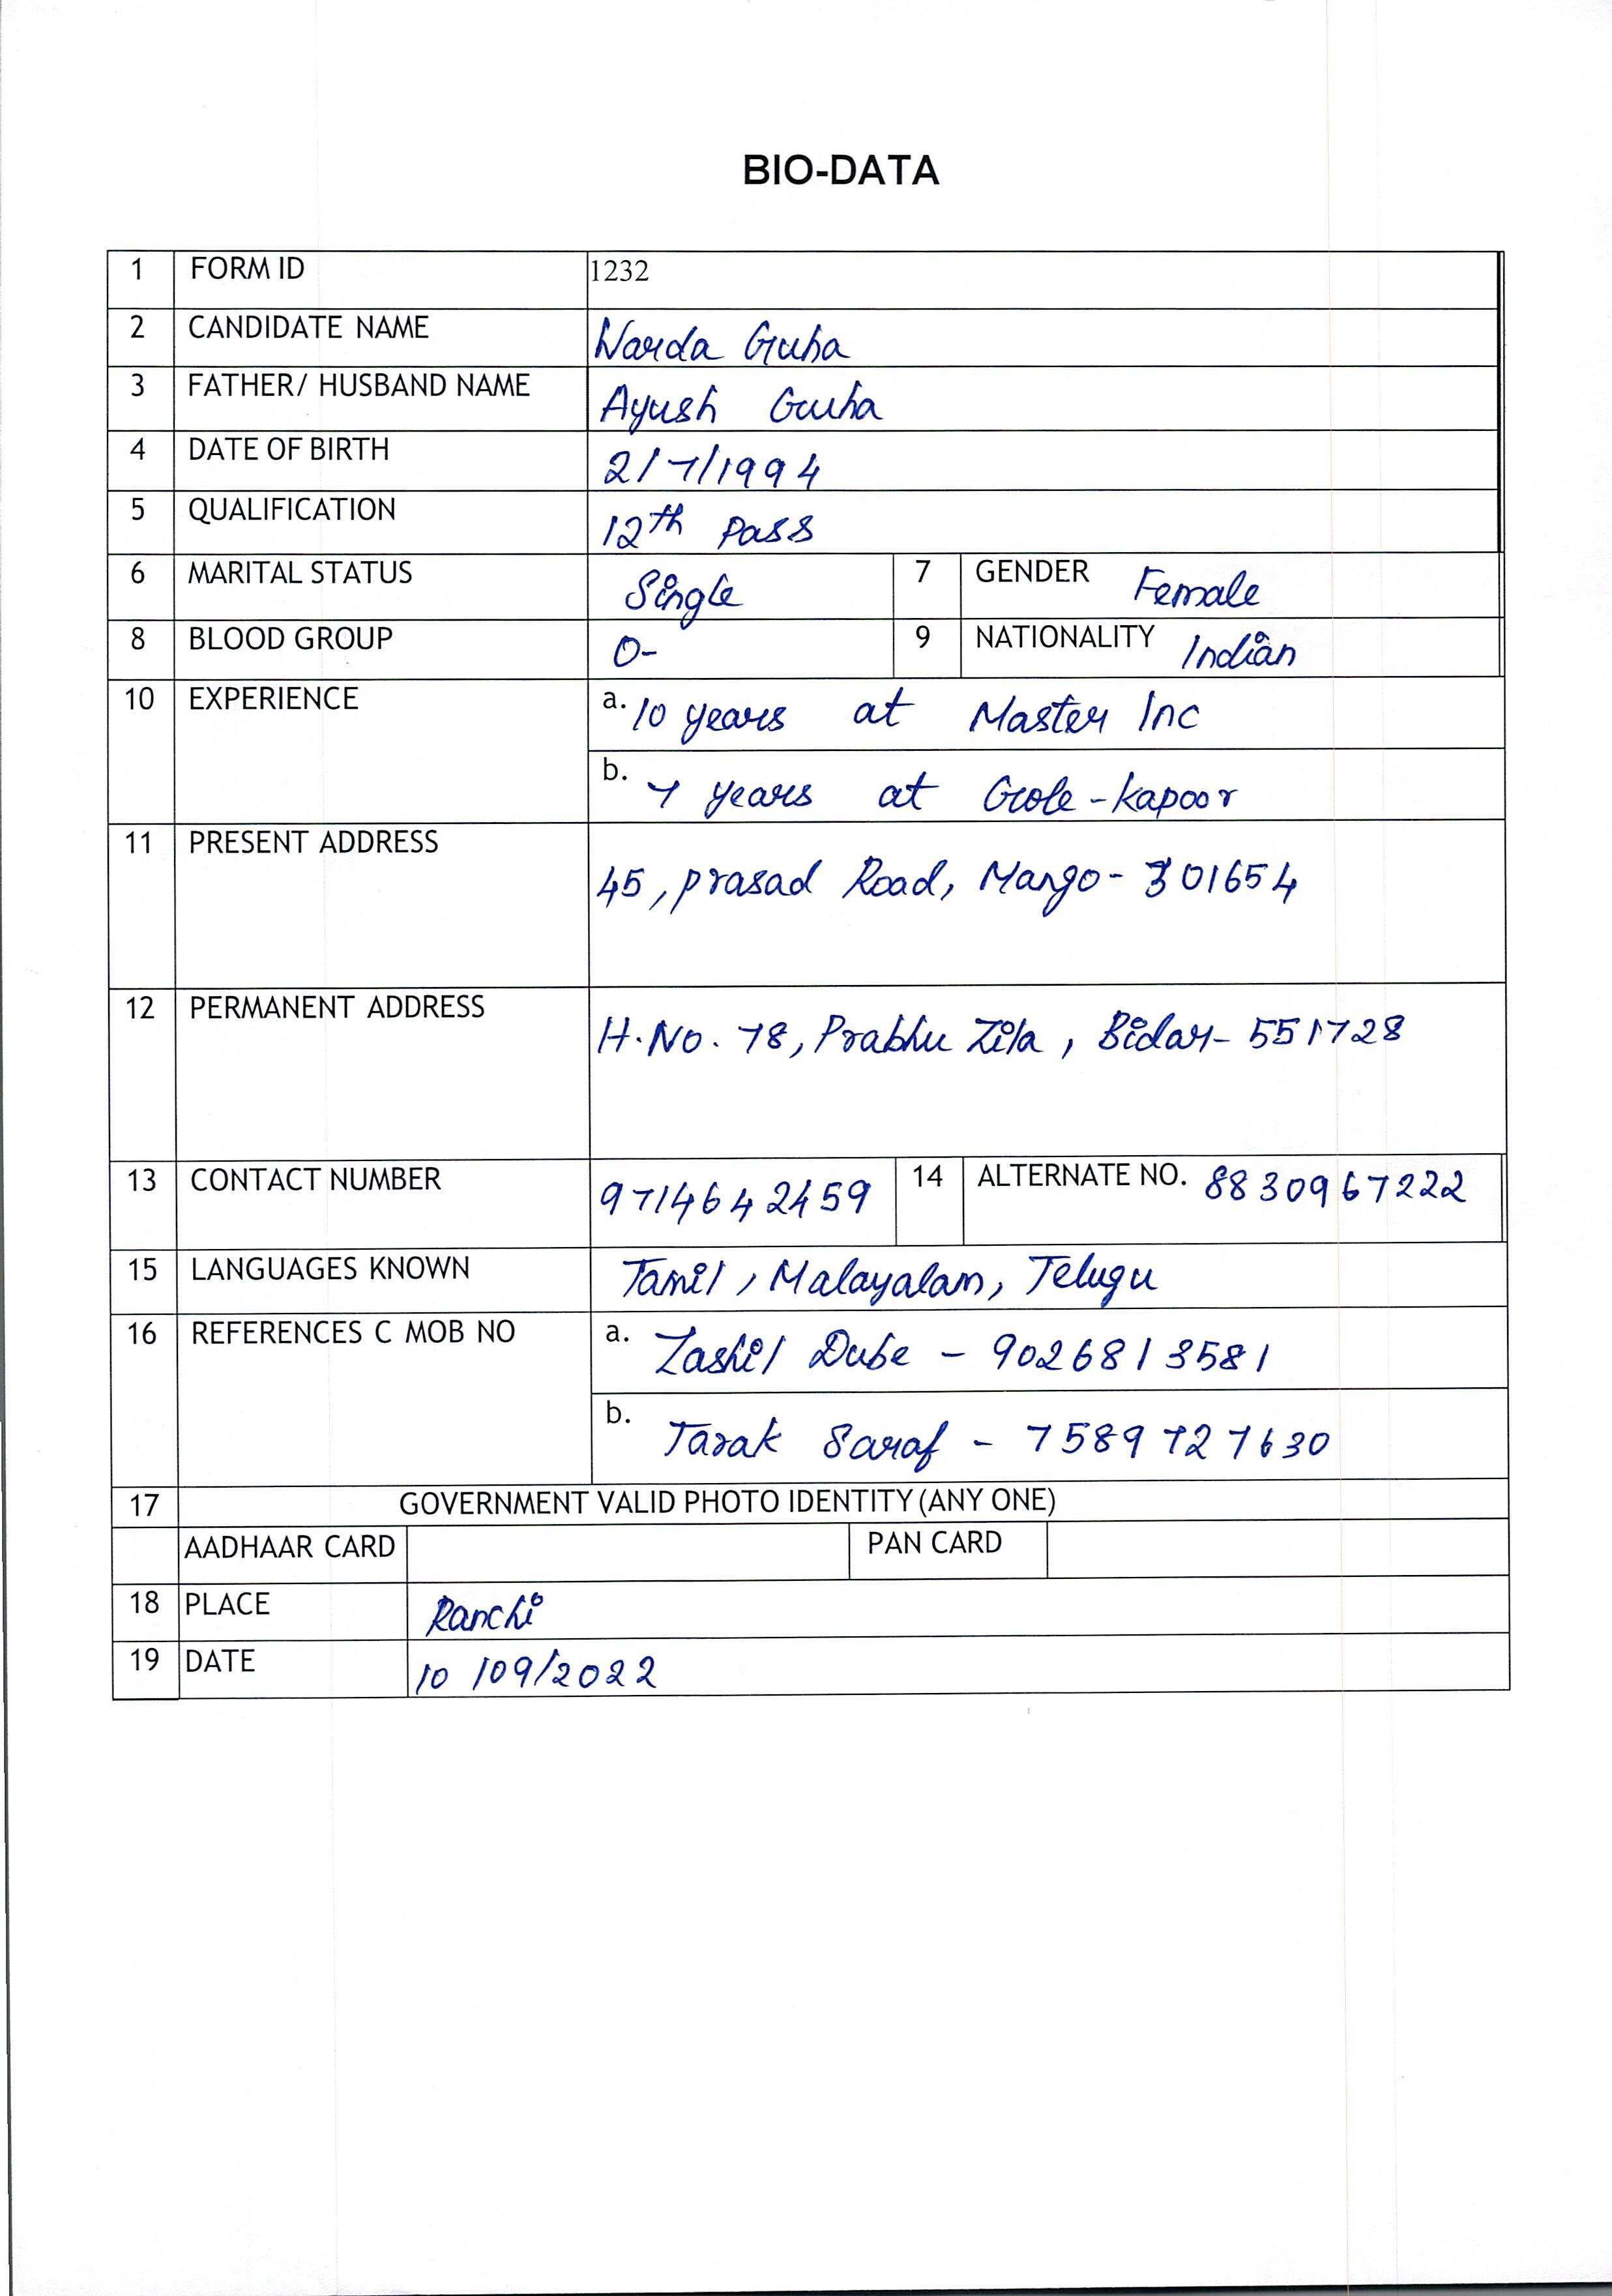 BIO-DATA
1 FORM ID 1232
2 CANDIDATE NAME Warda Guha
3 FATHER/ HUSBAND NAME Ayush Guha
4 DATE OF BIRTH 2/7/1994
5 QUALIFICATION 12th Pass
6 MARITAL STATUS Single 7 GENDER Female
8 BLOOD GROUP O- 9 NATIONALITY Indian
10 EXPERIENCE a. 10 years at Master Inc
b. 7 years at Gole-Kapoor
11 PRESENT ADDRESS 45, Prasad Road, Mango- 301654
12 PERMANENT ADDRESS H.No. 78, Prabhu Zila, Bidar- 551728
13 CONTACT NUMBER 9714642459 14 ALTERNATE NO. 8830967222
15 LANGUAGES KNOWN Tamil, Malayalam, Telugu
16 REFERENCES C MOB NO a. Zashil Dube - 9026813581
b. Tarak Saraf - 7589727630
17 GOVERNMENT VALID PHOTO IDENTITY (ANY ONE)
AADHAAR CARD PAN CARD
18 PLACE Ranchi
19 DATE 10/09/2022